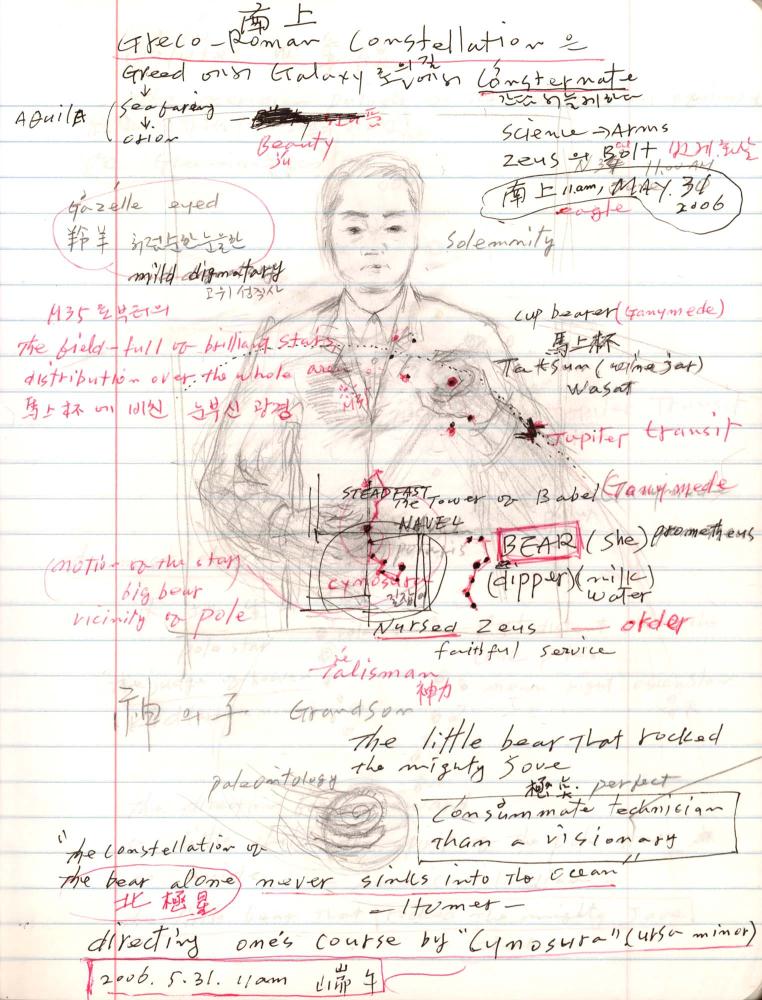 南上
Greco-Roman Constellation 은
Greed 에서 Galaxy 로의 길에서 Consternate
AQuilA Seafaring
orion
간담 서늘케하다
Beauty
Science → Arms
Zeus 의 Bolt 번개 화살
南上 11am, MAY. 31
2006
eagle
Gazelle eyed
羚羊 처럼 순한 눈을한
mild dignatary
고위 성직사
Solemnity
M35 로부터의
The field-full of brilliant stars
distribution over the whole area
馬上杯 에 비친 눈부신 광경
M35
cup bearer (Ganymede)
馬上杯
Taksum (wine jar)
Wasat
Jupiter transit
STEADFAST The Tower of Babel (Ganymede
NAVEL
polaris
BEAR (she) prometheus
(dipper) (milk)
water
cynosura
길잡이
(motion of the stars
big bear
vicinity of pole
Nursed Zeus — order
faithful service
Talisman
神力
神 의 子 Grandson
The little bear That rocked
the mighty Jove
paleontology
極臭 perfect
Consummate technician
Than a visionary
"the constellation of
the bear alone never sinks into the ocean"
北極星
— Homer —
directing one's course by "Cynosura" (ursa minor)
2006. 5. 31. 11am 端午